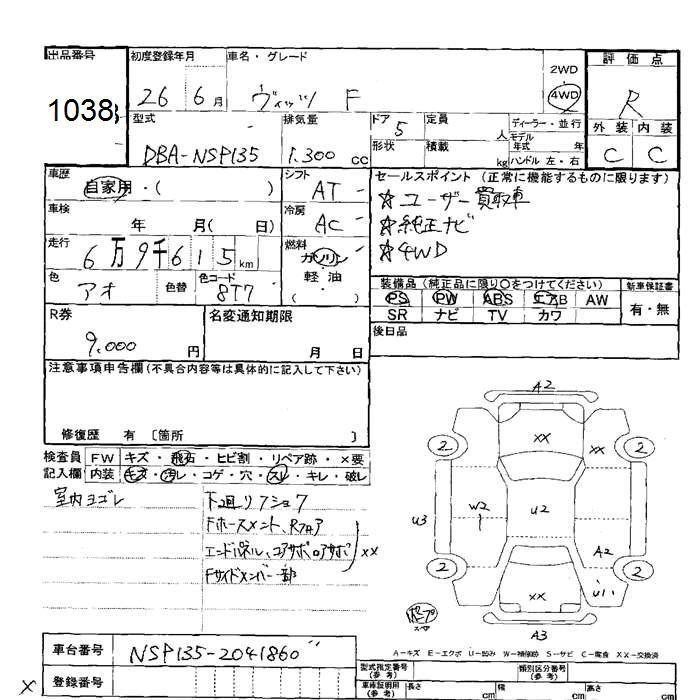 出品番号 初度登録年月 車名・グレード 2WD 評価点
1038 26 6月 ヴィッツ F 4WD R
型式 排気量 ドア 定員 ディーラー・並行 外装 内装
DBA-NSP135 1.300 cc 5 人 モデル年式 年 C C
形状 積載 kg ハンドル 左・右
車歴 シフト セールスポイント (正常に機能するものに限ります)
自家用・( ) AT ☆ユーザー買取車
車検 冷房 ☆純正ナビ
年 月( 日) AC ☆4WD
走行 燃料
6万9千615km ガソリン
色 色替 色コード 軽・油
アオ 8T7 ( )
装備品 (純正品に限り○をつけてください) 新車保証書
PS PW ABS エアB AW 有・無
SR ナビ TV カワ
R券 名変通知期限 後日品
9,000 円 月 日
注意事項申告欄 (不具合内容等は具体的に記入して下さい)
修復歴 有 〔箇所 〕
検査員 FW キズ・飛石・ヒビ割・リペア跡・×要
記入欄 内装 キズ・汚れ・コゲ・穴・スレ・キレ・破レ
室内ヨゴレ 下廻リフショク
エンドパネル、コアサポロアサポ ××
Fサイドメンバー一部
A2
XX XX
2 2
U3 W2 U2
A2
2 2
XX U1
A3
A-キズ E-エクボ U-凹み W-補修跡 S-サビ C-腐食 XX-交換済
車台番号 NSP135-2041860
登録番号
型式指定番号(参考) 類別区分番号(参考)
車庫証明用(参考) 長さ cm 幅 cm 高さ cm
X